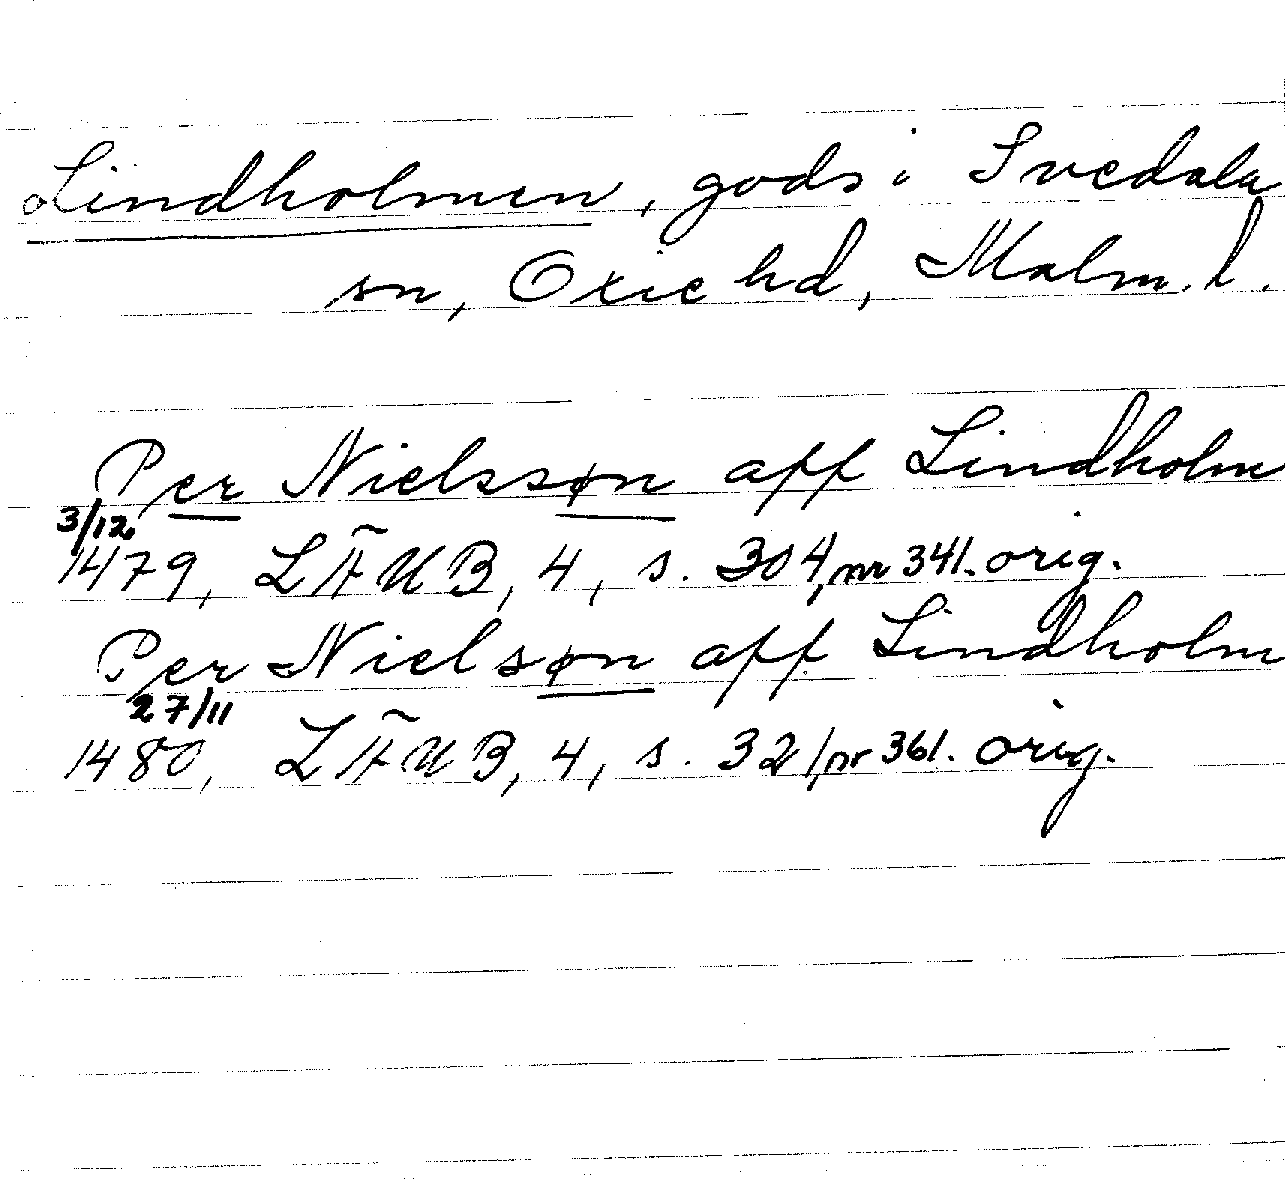 Lindholmen, gods i Svedala
sn, Oxie hd, Malm. l.
Per Nielssøn aff Lindholm
3/12
1479, LÄUB, 4, s. 304, nr 341. orig.
Per Nielsøn aff Lindholm
27/11
1480, LÄUB, 4, s. 321, nr 361. orig.